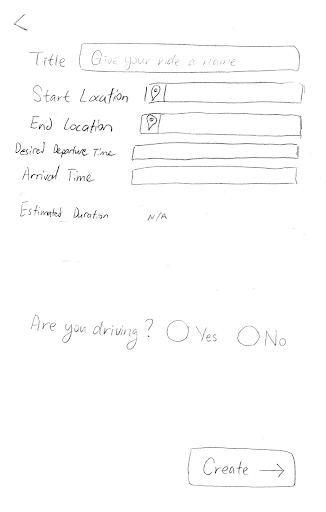 Title Give your ride a name
Start Location
End Location
Desired Departure Time
Arrival Time
Estimated Duration N/A
Are you driving? Yes No
Create →